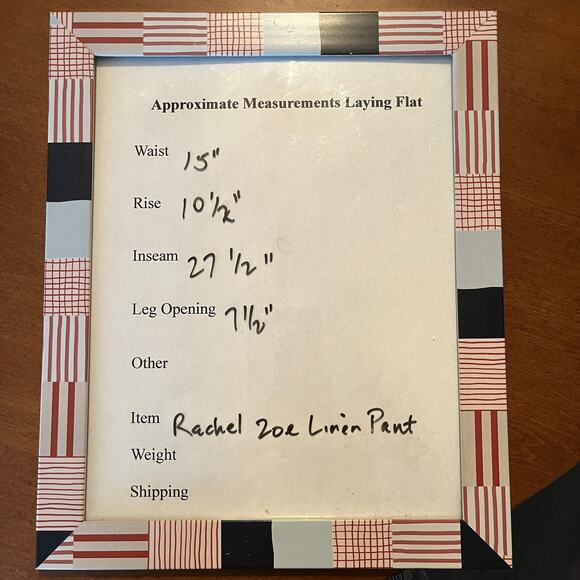 Approximate Measurements Laying Flat
Waist 15"
Rise 10 1/2"
Inseam 27 1/2"
Leg Opening 7 1/2"
Other
Item Rachel Zoe Linen Pant
Weight
Shipping